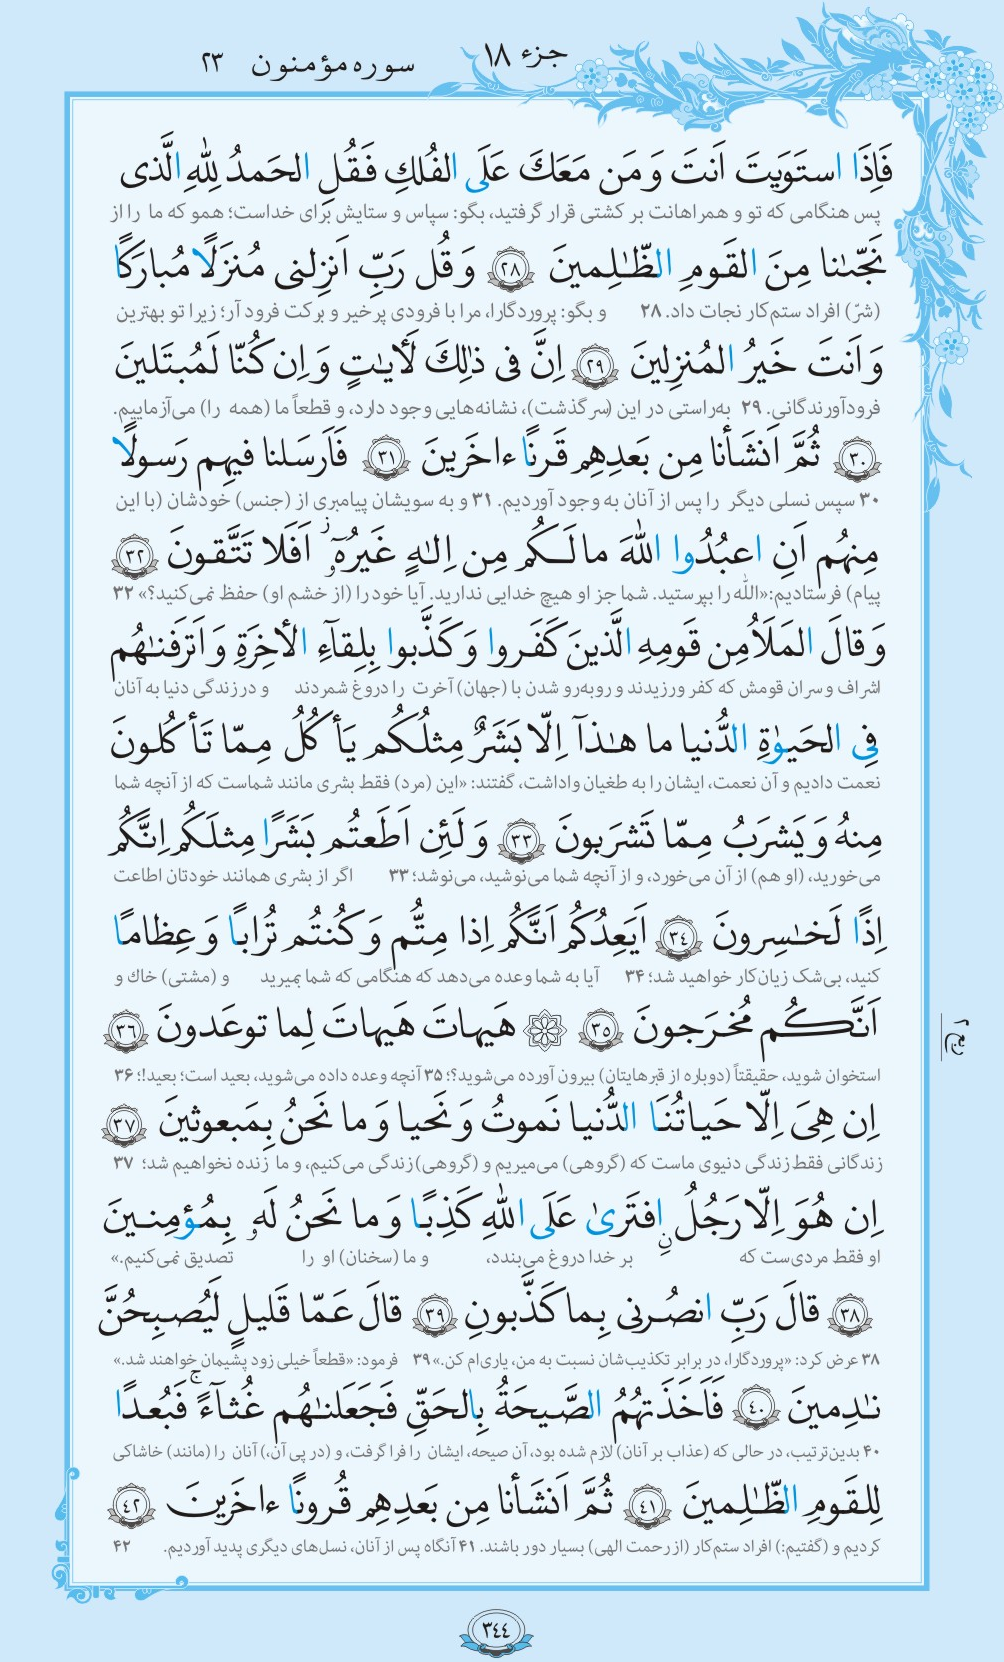 جزء ۱۸
سوره مؤمنون ۲۳
فَاِذَا استَوَيتَ اَنتَ وَ مَن مَعَكَ عَلَى الفُلكِ فَقُلِ الحَمدُ لِلّٰهِ الَّذى
پس هنگامی که تو و همراهانت بر کشتی قرار گرفتید، بگو: سپاس و ستایش برای خداست؛ همو که ما را از
نَجّىٰنا مِنَ القَومِ الظّٰلِمينَ ﴿٢٨﴾ وَ قُل رَبِّ اَنزِلنى مُنزَلًا مُبارَكًا
(شرّ) افراد ستم‌کار نجات داد. ۲۸ و بگو: پروردگارا، مرا با فرودی پرخیر و برکت فرود آر؛ زیرا تو بهترین
وَ اَنتَ خَيرُ المُنزِلينَ ﴿٢٩﴾ اِنَّ فى ذٰلِكَ لَأٓيٰتٍ وَ اِن كُنّا لَمُبتَلينَ
فرودآورندگانی. ۲۹ به‌راستی در این (سرگذشت)، نشانه‌هایی وجود دارد، و قطعاً ما (همه را) می‌آزماییم.
﴿٣٠﴾ ثُمَّ اَنشَأنا مِن بَعدِهِم قَرنًا ءاخَرينَ ﴿٣١﴾ فَاَرسَلنا فيهِم رَسولًا
۳۰ سپس نسلی دیگر را پس از آنان به وجود آوردیم. ۳۱ و به سویشان پیامبری از (جنس) خودشان (با این
مِنهُم اَنِ اعبُدُوا اللّٰهَ ما لَـكُم مِن اِلٰهٍ غَيرُهٓ اَفَلا تَتَّقونَ ﴿٣٢﴾
پیام) فرستادیم:«اللّٰه را بپرستید. شما جز او هیچ خدایی ندارید. آیا خود را (از خشم او) حفظ نمی‌کنید؟» ۳۲
وَ قالَ المَلَاُ مِن قَومِهِ الَّذينَ كَفَروا وَ كَذَّبوا بِلِقآءِ الأٓخِرَةِ وَ اَترَفنٰهُم
اشراف و سران قومش که کفر ورزیدند و روبه‌رو شدن با (جهان) آخرت را دروغ شمردند و در زندگی دنیا به آنان
فِى الحَيوٰةِ الدُّنيا ما هٰذآ اِلّا بَشَرٌ مِثلُكُم يَأكُلُ مِمّا تَأكُلونَ
نعمت دادیم و آن نعمت، ایشان را به طغیان واداشت، گفتند: «این (مرد) فقط بشری مانند شماست که از آنچه شما
مِنهُ وَ يَشرَبُ مِمّا تَشرَبونَ ﴿٣٣﴾ وَ لَئِن اَطَعتُم بَشَرًا مِثلَكُم اِنَّكُم
می‌خورید، (او هم) از آن می‌خورد، و از آنچه شما می‌نوشید، می‌نوشد؛ ۳۳ اگر از بشری همانند خودتان اطاعت
اِذًا لَخٰسِرونَ ﴿٣٤﴾ اَيَعِدُكُم اَنَّكُم اِذا مِتُّم وَ كُنتُم تُرابًا وَ عِظامًا
کنید، بی‌شک زیان‌کار خواهید شد؛ ۳۴ آیا به شما وعده می‌دهد که هنگامی که شما بمیرید و (مشتی) خاك و
اَنَّكُم مُخرَجونَ ﴿٣٥﴾ ۞ هَيهاتَ هَيهاتَ لِما توعَدونَ ﴿٣٦﴾
استخوان شوید، حقیقتاً (دوباره از قبرهایتان) بیرون آورده می‌شوید؟؛ ۳۵ آنچه وعده داده می‌شوید، بعید است؛ بعید!؛ ۳۶
ربع ۲
اِن هِىَ اِلّا حَياتُنَا الدُّنيا نَموتُ وَ نَحيا وَ ما نَحنُ بِمَبعوثينَ ﴿٣٧﴾
زندگانی فقط زندگی دنیوی ماست که (گروهی) می‌میریم و (گروهی) زندگی می‌کنیم، و ما زنده نخواهیم شد؛ ۳۷
اِن هُوَ اِلّا رَجُلُ نِ افتَرىٰ عَلَى اللّٰهِ كَذِبًا وَ ما نَحنُ لَهو بِمُؤمِنينَ
او فقط مردی‌ست که بر خدا دروغ می‌بندد، و ما (سخنان) او را تصدیق نمی‌کنیم.»
﴿٣٨﴾ قالَ رَبِّ انصُرنى بِما كَذَّبونِ ﴿٣٩﴾ قالَ عَمّا قَليلٍ لَيُصبِحُنَّ
۳۸ عرض کرد: «پروردگارا، در برابر تکذیب‌شان نسبت به من، یاری‌ام کن.» ۳۹ فرمود: «قطعاً خیلی زود پشیمان خواهند شد.»
نٰدِمينَ ﴿٤٠﴾ فَاَخَذَتهُمُ الصَّيحَةُ بِالحَقِّ فَجَعَلنٰهُم غُثآءً ۚ فَبُعدًا
۴۰ بدین‌ترتیب، در حالی که (عذاب بر آنان) لازم شده بود، آن صیحه، ایشان را فرا گرفت، و (در پی آن،) آنان را (مانند) خاشاکی
لِلقَومِ الظّٰلِمينَ ﴿٤١﴾ ثُمَّ اَنشَأنا مِن بَعدِهِم قُرونًا ءاخَرينَ ﴿٤٢﴾
کردیم و (گفتیم:) افراد ستم‌کار (از رحمت الهی) بسیار دور باشند. ۴۱ آنگاه پس از آنان، نسل‌های دیگری پدید آوردیم. ۴۲
٣٤٤